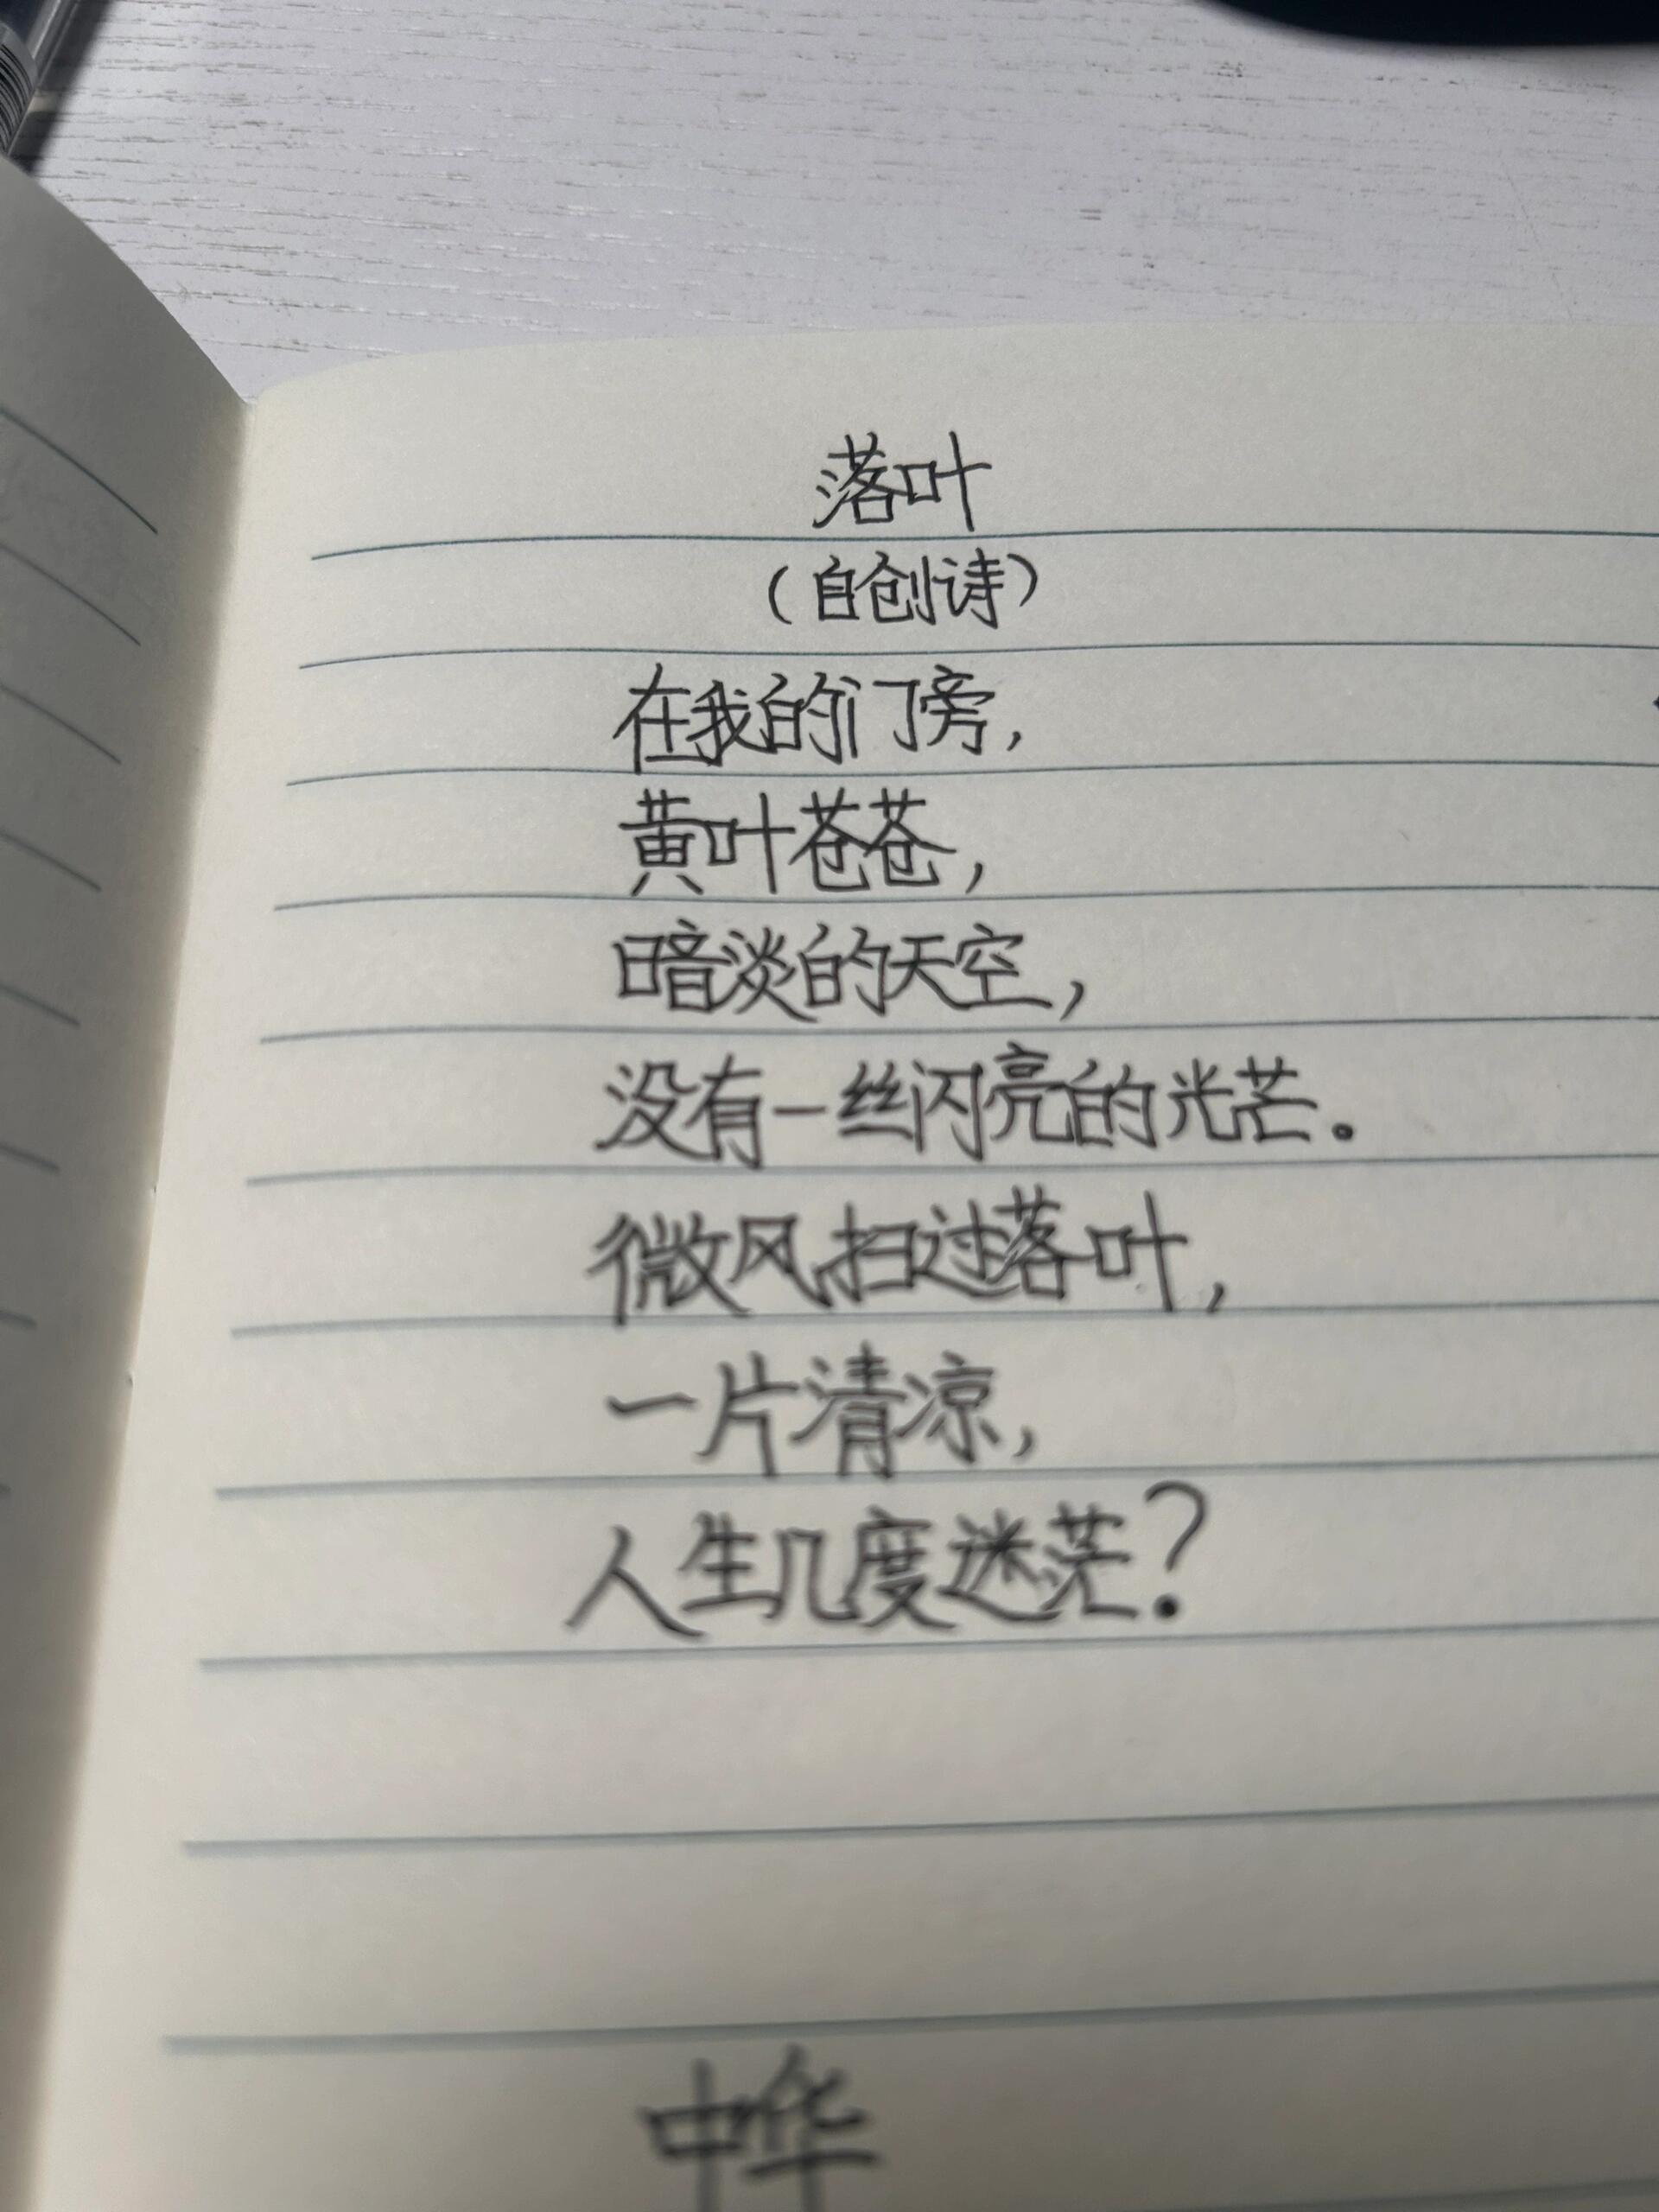 落叶
（自创诗）
在我的门旁，
黄叶苍苍，
暗淡的天空，
没有一丝闪亮的光芒。
微风扫过落叶，
一片清凉，
人生几度迷茫？
中华